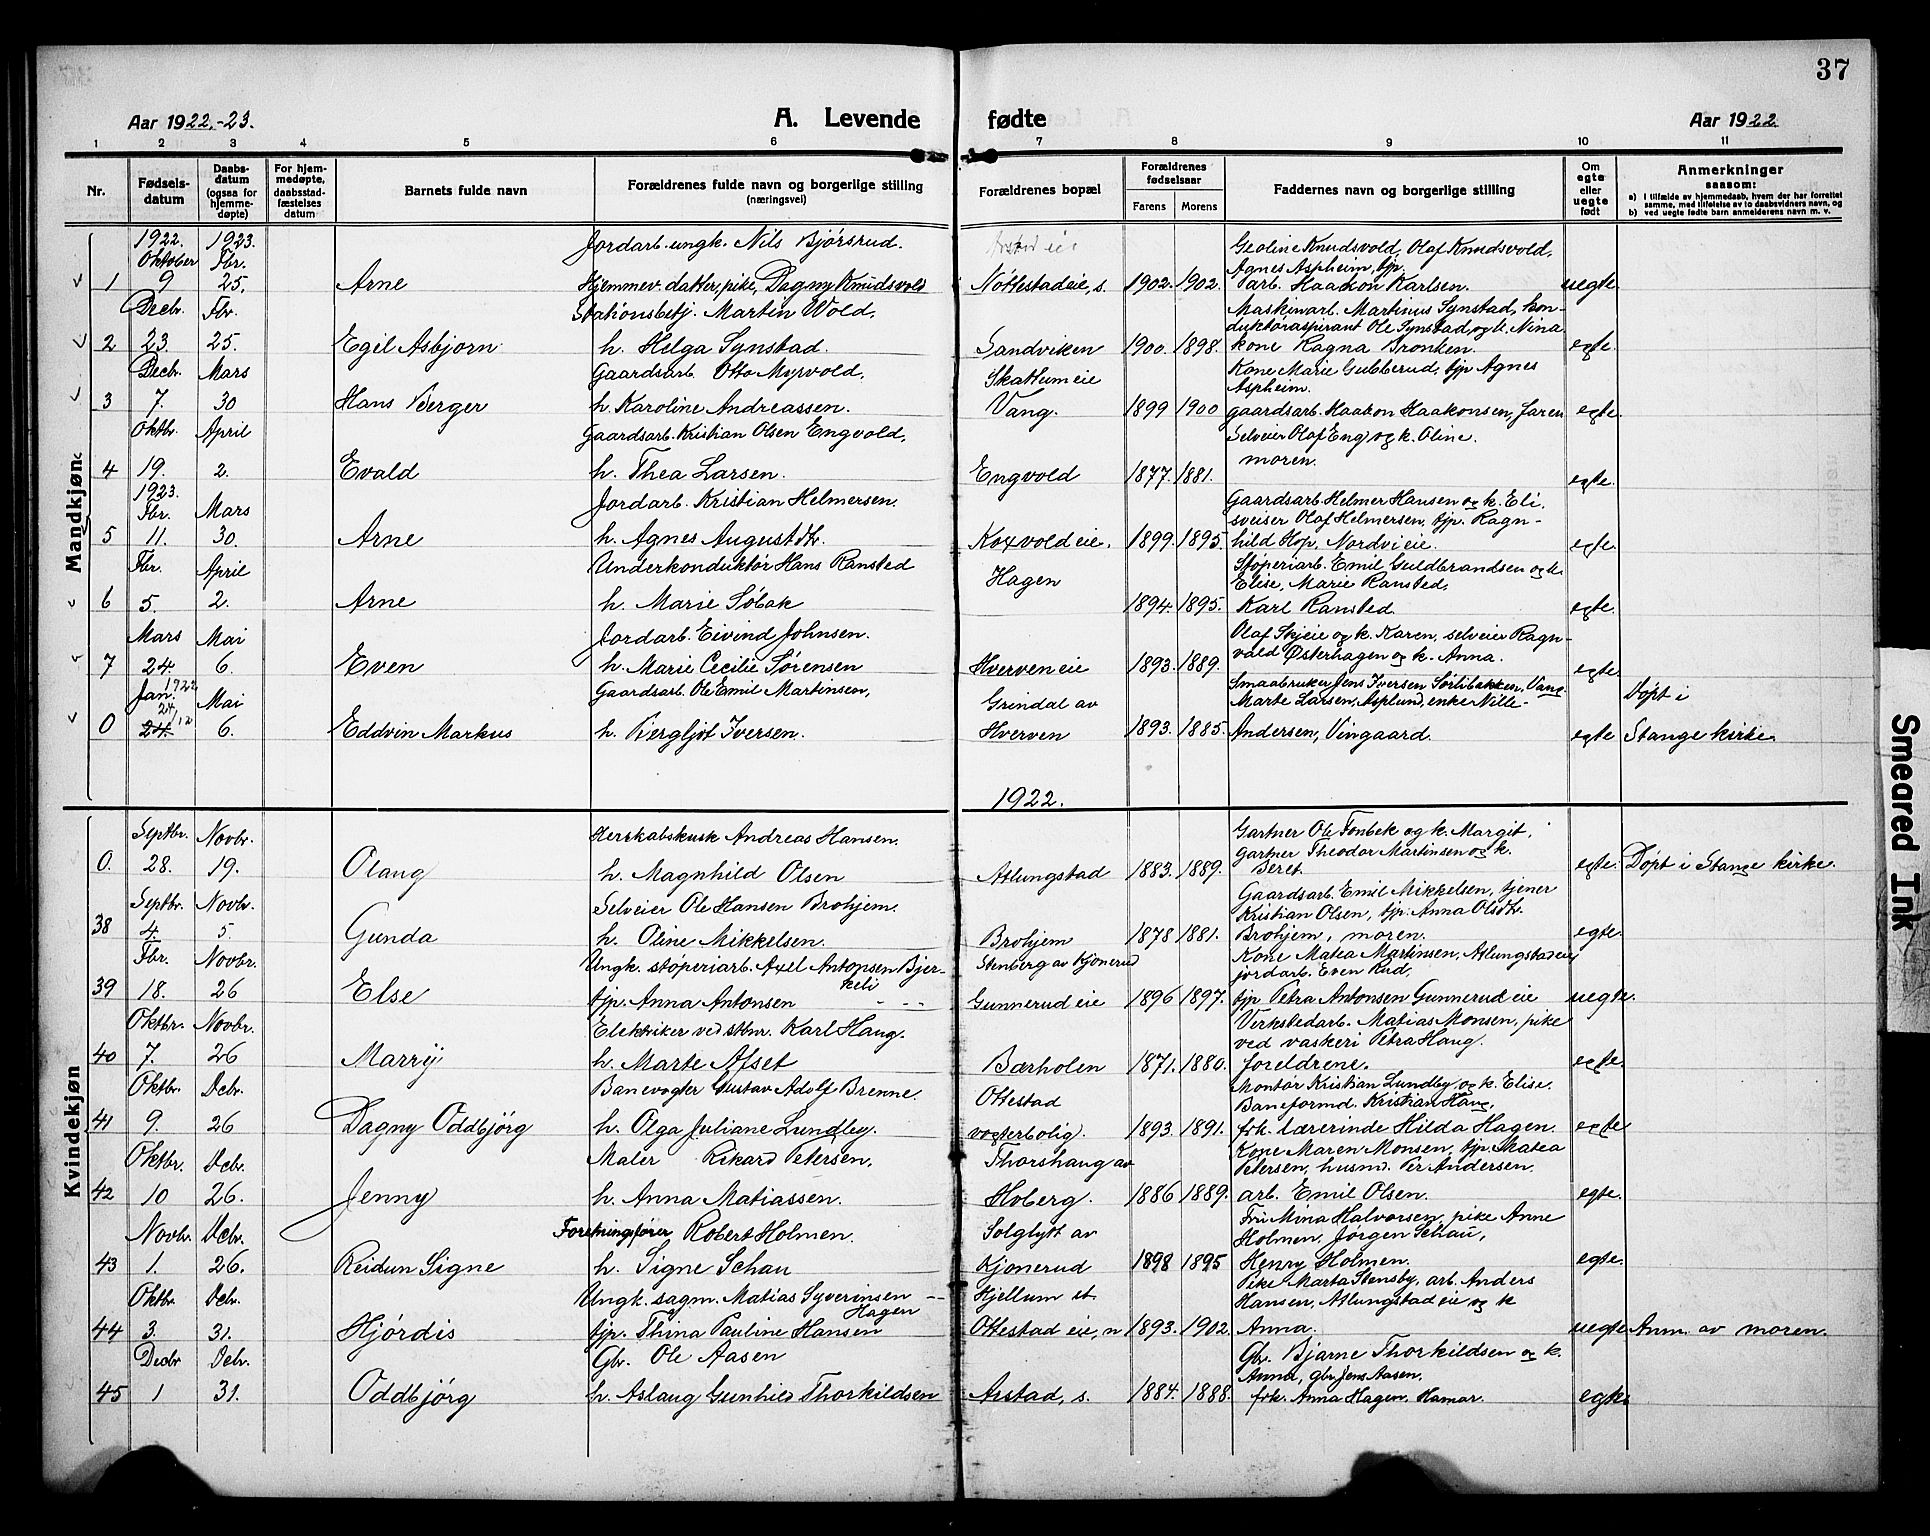 37
Aar 1922.-23.
A. Levende fødte
Aar 1922
1 2 3 4 5 6 7 8 9 10 11
Nr.
Fødsels-
datum
Daabs-
datum
(ogsaa for
hjemme-
døpte)
For hjem-
medøpte,
daabsstad-
fæstelses
datum
Barnets fulde navn
Forældrenes fulde navn og borgerlige stilling
(næringsvei)
Forældrenes bopæl
Forældrenes
fødselsaar
Farens
Morens
Faddernes navn og borgerlige stilling
Om
egte
eller
uegte
født
Anmerkninger
saasom:
a) i tilfælde av hjemmedaab, hvem der har forrettet
samme, med tilføielse av to daabsvidners navn, og
b) ved uegte fødte barn anmelderens navn m. v.
Mandkjøn
1922. 1923. Jordarb. ungk. Nils Bjørsrud. Geoline Knudsvold, Olaf Knudsvold,
Oktober Fbr. Agnes Aspheim, tjp.
1 9 25. Arne Hjemmev. datter, pike, Dagny Knudsvold Nøttestadeie, s. 1902. 1902. arb. Haakon Karlsen. uegte
Decbr. Fbr. Stationsbetj. Martin Wold, Maskinarb. Martinus Synstad, kon-
duktøraspirant Ole Synstad og k. Nina
2 23. 25. Egil Asbjørn h. Helga Synstad. Sandviken 1900. 1898. kone Ragna Bronken. egte.
Decbr. Mars Gaardsarb. Otto Myrvold, Skattumeie Kone Marie Gubberud, tjp Agnes
Aspheim.
3 7. 30 Hans Berger h. Karoline Andreassen. Vang. 1899 1900 gaardsarb. Haakon Haakonsen, Jaren egte.
Oktbr. April Gaardsarb. Kristian Olsen Engvold, Selveier Olaf Eng og k. Oline.
moren.
4 19. 2. Evald h. Thea Larsen. Engvold 1877. 1881. egte.
1923.
Fbr. Mars Jordarb. Kristian Helmersen. Gaardsarb. Helmer Hansen og k. Eli,
sveiser Olaf Helmersen, tjp. Ragn-
5 11. 30. Arne h. Agnes Augustdtr. Koxvoldeie, 1899. 1895. hild Hop, Nordvieie. egte.
Fbr. April Underkonduktør Hans Ransted Hagen Støperiarb. Emil Guldbrandsen og k.
Elise, Marie Ransted,
6 5. 2. Arne h. Marie Søbak 1894. 1895. Karl Ransted. egte.
Mars Mai Jordarb. Eivind Johnsen. Olaf Skjeie og k. Karen, selveier Ragn-
7 24 6. Even h. Marie Cecilie Sørensen Hverveneie 1893. 1889. vald Østerhagen og k. Anna. egte.
Jan. 1922 Mai Gaardsarb. Ole Emil Martinsen, Grindal av Smaabruker Jens Iversen Sørlibakken, Vang Døpt i
24/12 Marte Larsen, Asplund, enke Nille-
0 24. 6. Eddvin Markus h. Bergljot Iversen. Hverven 1893. 1885. Andersen, Vingaard. egte Stange kirke.
1922.
Kvindekjøn
Septbr. Novbr. Herskabskusk Andreas Hansen. Gartner Ole Fonbek og k. Margit,
gartner Theodor Martinsen og k.
0. 28. 19. Olaug h. Magnhild Olsen Atlungstad 1883. 1889. Beret. egte. Døpt i Stange kirke.
Septbr. Novbr. Selveier Ole Hansen Brohjem. Gaardsarb. Emil Mikkelsen, tjener
Kristian Olsen, tjp. Anna Olsdtr.
38 4. 5. Gunda h. Oline Mikkelsen. Brohjem 1878 1881. Brohjem, moren. egte.
Fbr. Novbr. Ungk. støperiarb. Axel Antonsen Bjer- Stenberg av Kjonerud Kone Matea Martinsen, Atlungstadeie,
keli jordarb. Even Rud,
39 18. 26 Else tjp. Anna Antonsen - - - Gunnerudeie 1896 1897. tjp Petra Antonsen Gunnerudeie uegte.
Oktbr. Novbr. Elektriker ved stbnr. Karl Haug. Verkstedarb. Matias Monsen, pike
ved vaskeri Petra Haug.
40 7. 26 Marrÿ h. Marte Afset Bærholen 1871. 1880. foreldrene. egte.
Oktbr. Decbr. Banevogter Gustav Adolf Brenne. Ottestad Montør Kristian Lundby og k. Elise.
Baneformd. Kristian Haug.
41 9. 26 Dagny Oddbjørg h. Olga Juliane Lundby. vogterbolig. 1893. 1891. frk. lærerinde Hilda Hagen. egte
Oktbr. Decbr. Maler Rikard Petersen, Thorshaug av Kone Maren Monsen, tjp. Matea
Petersen, husmd. Per Andersen.
42 10 26. Jenny h. Anna Matiassen. Hoberg. 1886 1889. arb. Emil Olsen. egte.
Novbr. Decbr. Foretningsfører Robert Holmen. Solglytt av Fru Mina Halvorsen, pike Anne
Holmen, Jørgen Schau,
43 1. 26. Reidun Signe h. Signe Schau Kjonerud 1898 1895 Henry Holmen. egte.
Oktbr. Decbr. Ungk. sagm. Matias Syverinsen - - Hjellum st. Pike Marta Stensby, arb. Anders
Hagen Hansen, Atlungstadeie og k
44 3. 31. Hjørdis tjp. Thina Pauline Hansen Ottestadeie, n 1893. 1902. Anna. uegte Anm. av moren.
Decbr Decbr. Gbr. Ole Aasen Gbr. Bjarne Thorkildsen og k.
Anna, gbr. Jens Aasen.
45 1 31. Oddbjørg h. Aslaug Gunhild Thorkildsen Arstad, s. 1884. 1888. frk. Anna Hagen, Hamar. egte
Smeared Ink